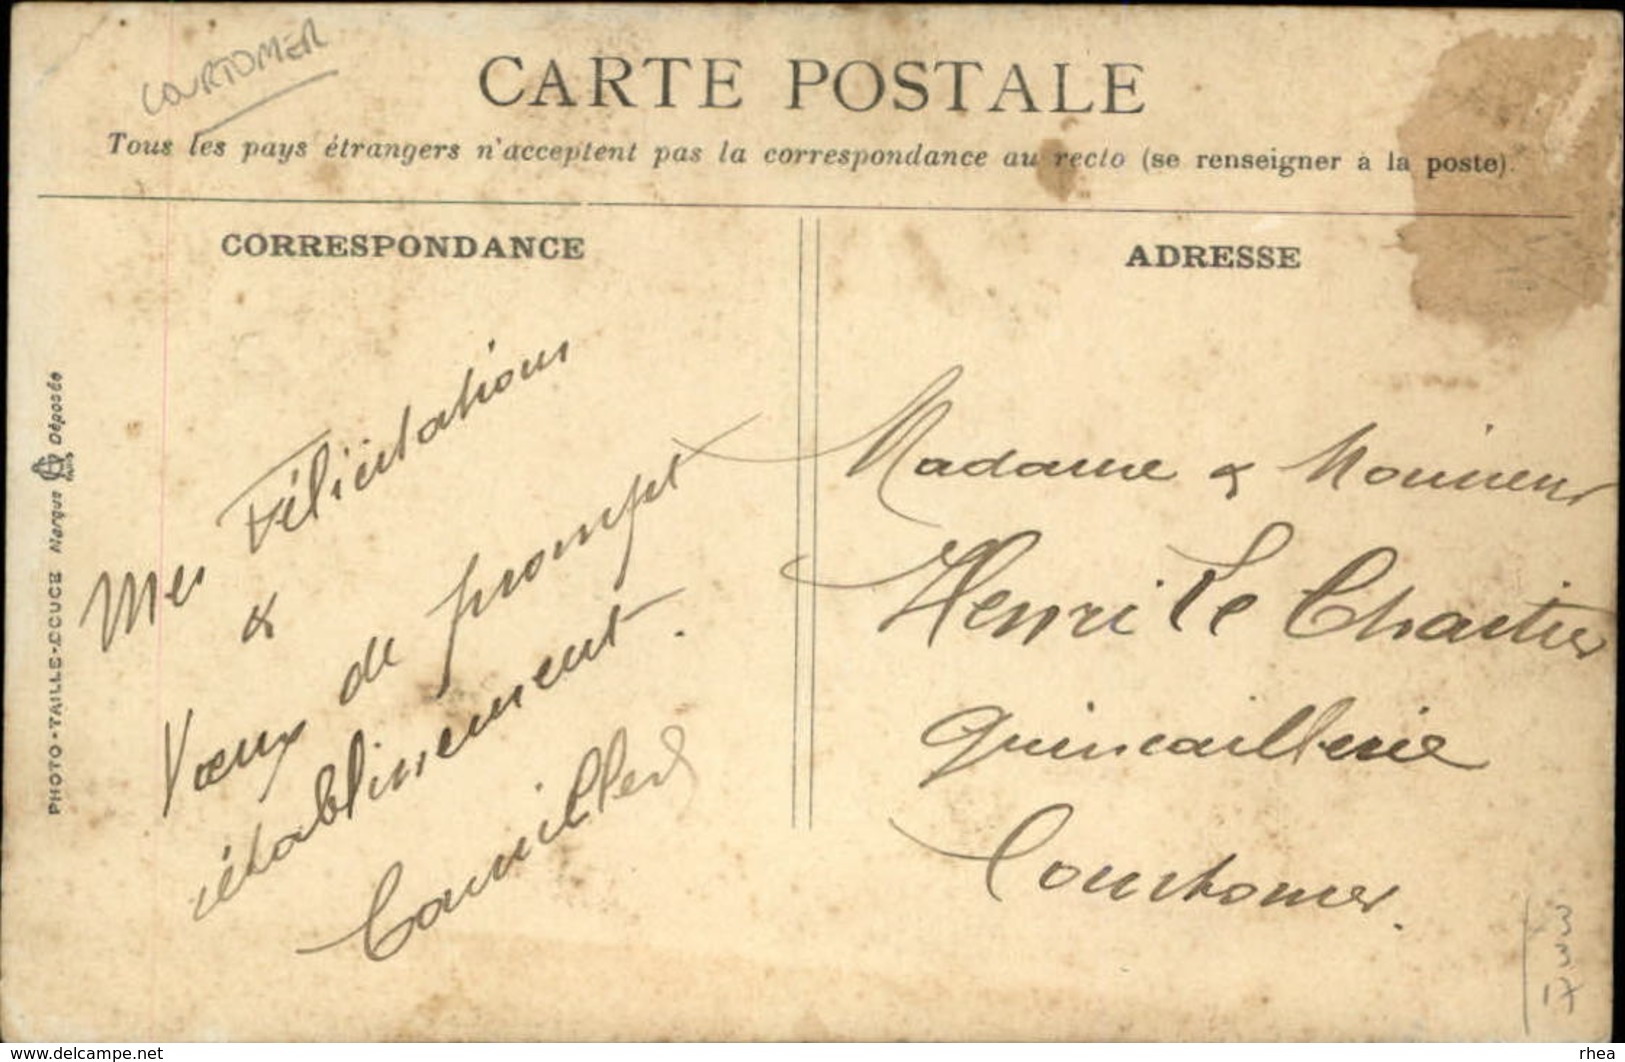 COURTOMER
CARTE POSTALE
Tous les pays étrangers n'acceptent pas la correspondance au recto (se renseigner à la poste).
CORRESPONDANCE
Mes Félicitations
&
Vœux de prompt
rétablissement.
ADRESSE
Madame & Monsieur
Henri Le Chartier
Quincaillerie
Courtomer.
PHOTO-TAILLE-DOUCE Marque Déposée
33
17
www.delcampe.net
rhea